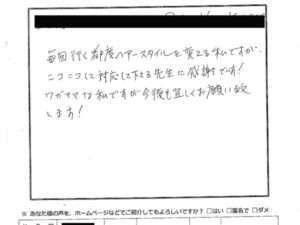 毎回行く都度ヘアースタイルを変える私ですが、
ニコニコして対応して下さる先生に感謝です!
ワガママな私ですが今後も宜しくお願い致
します!
※ あなた様の声を、ホームページなどでご紹介してもよろしいですか? □はい □匿名で □ダメ